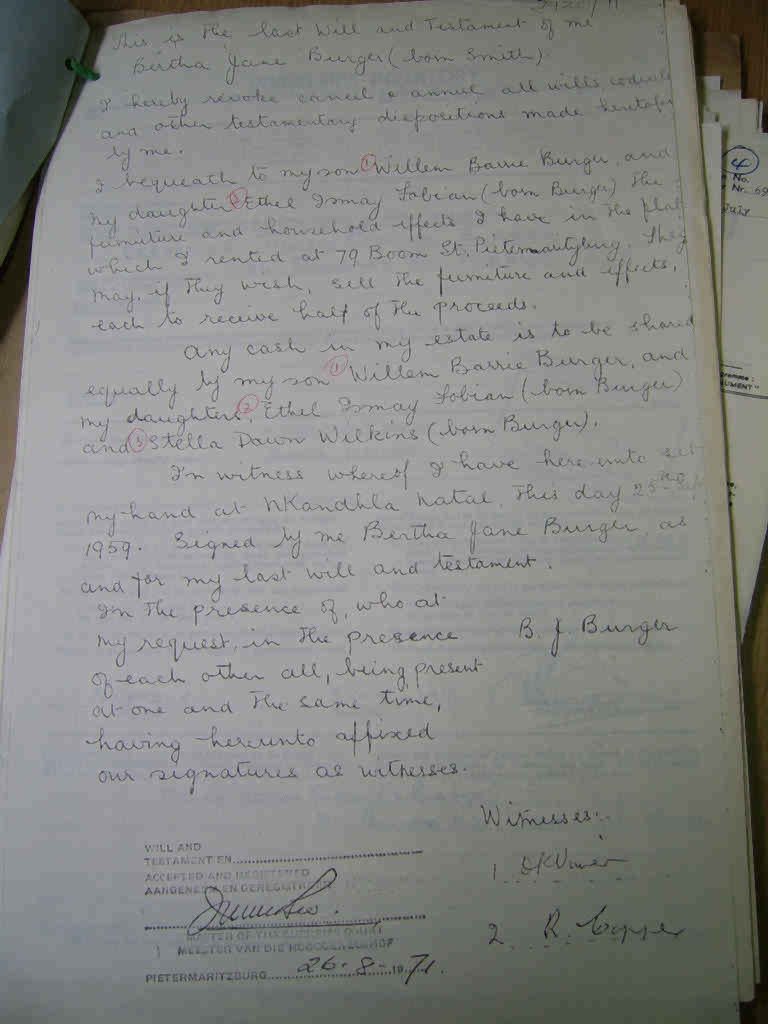 This is the last Will and Testament of me
Bertha Jane Burger (born Smith).
I hereby revoke cancel & annul all wills, codicils
and other testamentary dispositions made heretofore
by me.
I bequeath to my son ① Willem Barrie Burger, and
my daughter ② Ethel Ismay Fabian (born Burger) the
furniture and household effects I have in the flat
which I rented at 79 Boom St, Pietermaritzburg. They
may, if they wish, sell the furniture and effects,
each to receive half of the proceeds.
Any cash in my estate is to be shared
equally by my son ① Willem Barrie Burger, and
my daughters, ② Ethel Ismay Fabian (born Burger)
and ③ Stella Dawn Wilkins (born Burger).
In witness whereof I have here unto set
my hand at Nkandhla Natal, this day 25 Sept
1959. Signed by me Bertha Jane Burger as
and for my last will and testament.
In the presence of, who at
my request, in the presence
B. J. Burger
of each other all, being present
at one and the same time,
having hereunto affixed
our signatures as witnesses.
Witnesses:
1
2 R.
WILL AND
TESTAMENT EN
ACCEPTED AND REGISTERED
AANGENEEM EN GEREGISTREER
MASTER OF THE SUPREME COURT
MEESTER VAN DIE HOOGGEREGSHOF
PIETERMARITZBURG 26-8-1971.
4
No.
Nr. 69
July
UMENT"